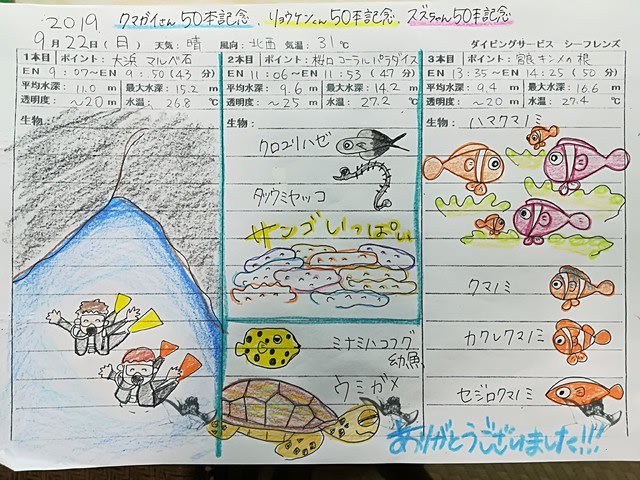 2019 クマガイさん50本記念、リョウケンくん50本記念 スズちゃん50本記念
9月22日(日) 天気:晴 風向:北西 気温:31℃ ダイビングサービス シーフレンズ
1本目 ポイント:大浜 マルベ石
EN 9:07~EN 9:50(43分)
平均水深: 11.0 m 最大水深: 15.2 m
透明度: ~20 m 水温: 26.8 ℃
生物:
2本目 ポイント:桜口コーラルパラダイス
EN 11:06~EN 11:53(47分)
平均水深: 9.6 m 最大水深: 14.2 m
透明度: ~25 m 水温: 27.2 ℃
生物:
クロユリハゼ
タツウミヤッコ
サンゴいっぱい
ミナミハコフグ
幼魚
ウミガメ
3本目 ポイント: キンメの根
EN 13:35~EN 14:25(50分)
平均水深: 9.4 m 最大水深: 16.6 m
透明度: ~20 m 水温: 27.4 ℃
生物:
ハマクマノミ
クマノミ
カクレクマノミ
セジロクマノミ
ありがとうございました!!!